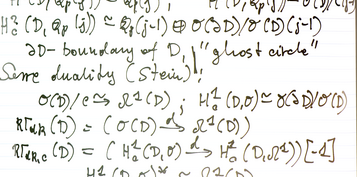 H_c^2(D, Q_p(j)) ≃ Q_p(j-1) ⊕ O(∂D)/O(D)(j-1)
∂D - boundary of D, "ghost circle"
Serre duality (Stein):
O(D)/c ≃ Ω^1(D) ; H_c^1(D,O) ≃ O(∂D)/O(D)
RΓ_dR(D) = (O(D) →^d Ω^1(D))
RΓ_dR,c(D) = (H_c^1(D,O) →^d H_c^1(D,Ω^1))[-1]